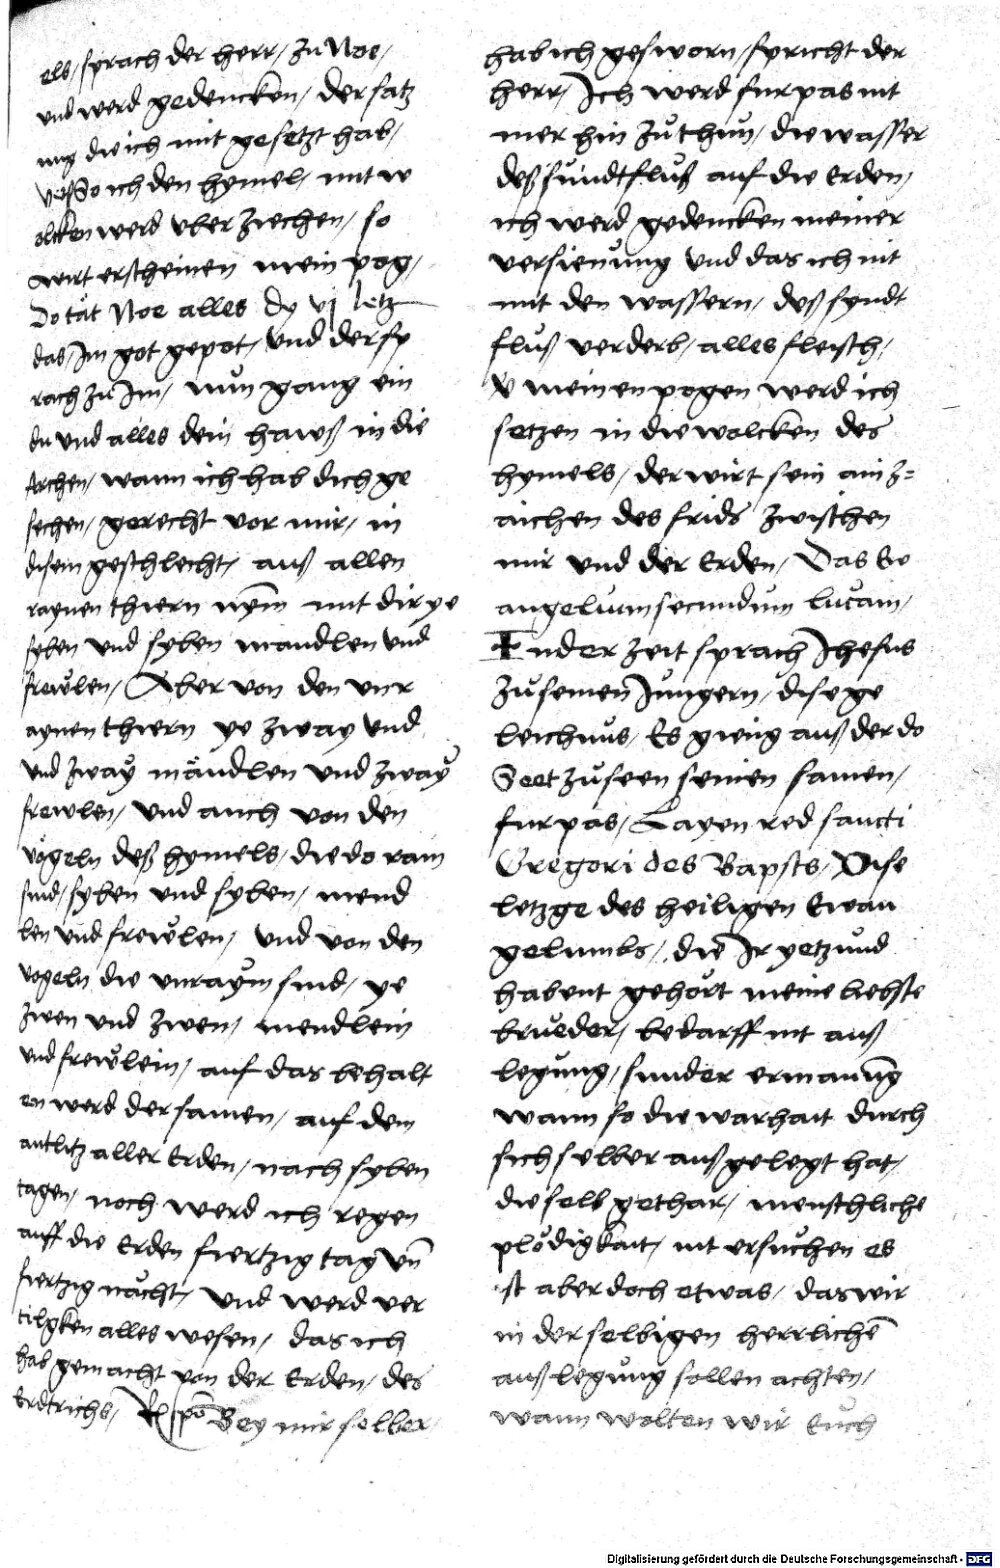 els / sprach der herr / zu Noe /
und werd gedencken / der satz
ung die ich mit gesetzt hab /
So ich den hymel / mit w
olcken werd vber ziechen / so
wirt erscheinen mein pog /
Do tät Noe alles dy vj letz
das / Im got gepot / und der sp
rach zu Im / nun gang ein
du und alles dein hawß in die
Archen / wann ich hab dich ge
sechen / gerecht vor mir / in
disem geschlecht / auß allen
raynen thiern nym mit dir ye
syben und syben mandlen und
frewlen / Aber von den vnr
aynen thiern ye zway und
und zway mändlen und zway
frewlen / und auch von den
vögeln deß hymels / die do rain
sind / syben und syben / mend
len und frewlen / und von den
vogeln die vnrayn sind / ye
zwen und zwen / mendlein
und frewlein / auf das behalt
en werd der samen / auf dem
antlitz aller Erden / nach syben
tagen / noch werd ich regen
auff die Erden fiertzig tag vn̄
fiertzig nächt / und werd ver
tilgken alles wesen / das ich
hab gemacht von der Erden / des
Erdtrichs / Respō Bey mir selber
hab ich gesworn / spricht der
herr / Ich werd furpas nit
mer hin zu thun / die wasser
deß sündtfluß auf die Erden /
ich werd gedencken meiner
versienung und das ich nit
mit den wassern / deß syndt
fluß verderb / alles fleisch /
v meinen pogen werd ich
setzen in die wolcken des
hymels / der wirt sein ain z=
aichen des frids zwischen
mir und der Erden / Das Ew
angelium secundum lucam /
In der zeit sprach Jhesus
zu seinen Jungern / dise ge
leichnus / Es gieng auß der do
Seet zu seen seinen samen /
furpas / Layen red sancti
Gregori des Bapsts / Dise
letzge des heiligen Ewan
geliumbs / die Ir yetzund
habent gehört meine liebste
brueder / bedarff nit auß
legung / sunder ermanūg
wann so die warhait durch
sich selber auß gelegt hat /
die selb gethar / menschliche
plödigkait / nit ersuchen es
ist aber doch etwas / das wir
in der selbigen herrlichē
auß legung sollen achten /
wann wolten wir Euch
Digitalisierung gefördert durch die Deutsche Forschungsgemeinschaft - DFG